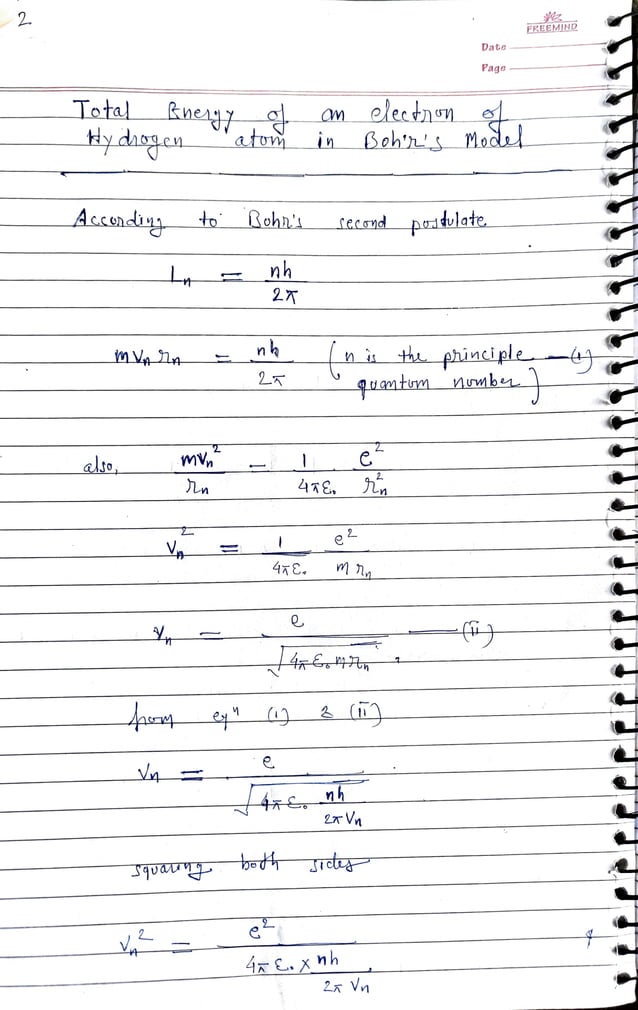 2
FREEMIND
Date
Page
Total Energy of an electron of
Hydrogen atom in Bohr's Model
According to Bohr's second postulate
Lₙ = nh/2π
mvₙrₙ = nh/2π (n is the principle quantum number) —(i)
also, mvₙ²/rₙ = 1/4πε₀ e²/rₙ²
vₙ² = 1/4πε₀ e²/mrₙ
vₙ = e/√(4πε₀mrₙ) —(ii)
from eqⁿ (i) & (ii)
vₙ = e/√(4πε₀ nh/2πvₙ)
squaring both sides
vₙ² = e²/(4πε₀ × nh/2πvₙ)